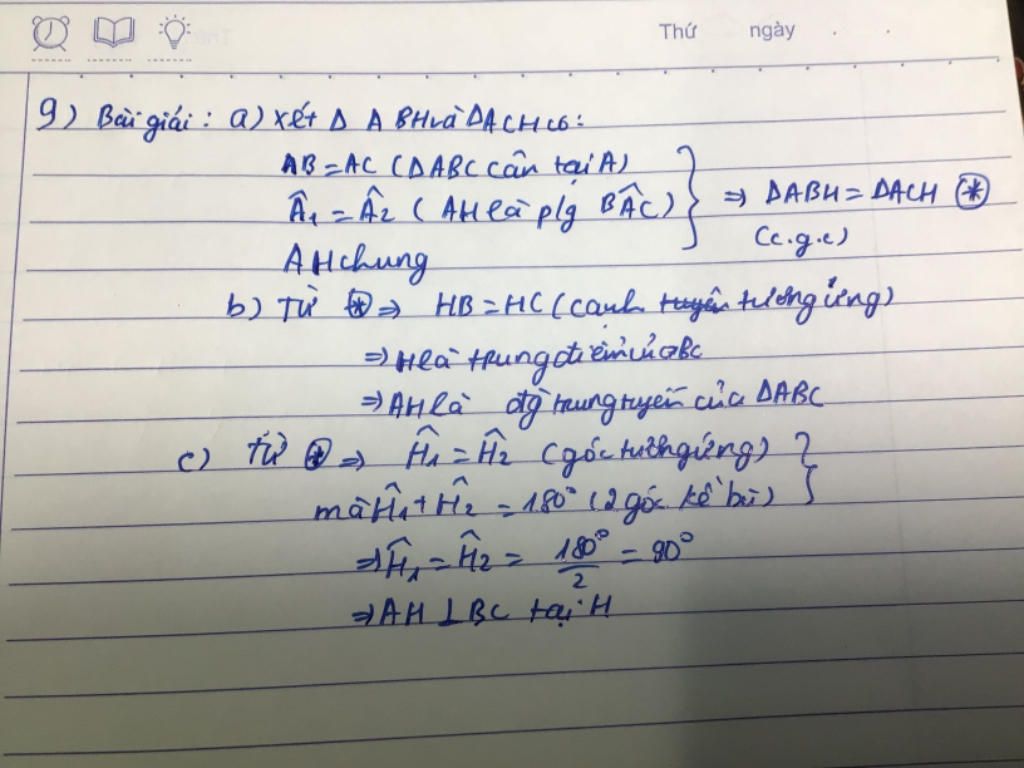 Thứ ngày
9) Bài giải: a) xét Δ ABH và ΔACH có:
AB = AC (ΔABC cân tại A)
Â₁ = Â₂ (AH là p/g BÂC) ⇒ ΔABH = ΔACH (*)
(c.g.c)
AH chung
b) Từ (*) ⇒ HB = HC (cạnh tương ứng)
⇒ H là trung điểm của BC
⇒ AH là đg trung tuyến của ΔABC
c) Từ (*) ⇒ Ĥ₁ = Ĥ₂ (góc tương ứng)
mà Ĥ₁ + Ĥ₂ = 180° (2 góc kề bù)
⇒ Ĥ₁ = Ĥ₂ = 180°/2 = 90°
⇒ AH ⊥ BC tại H